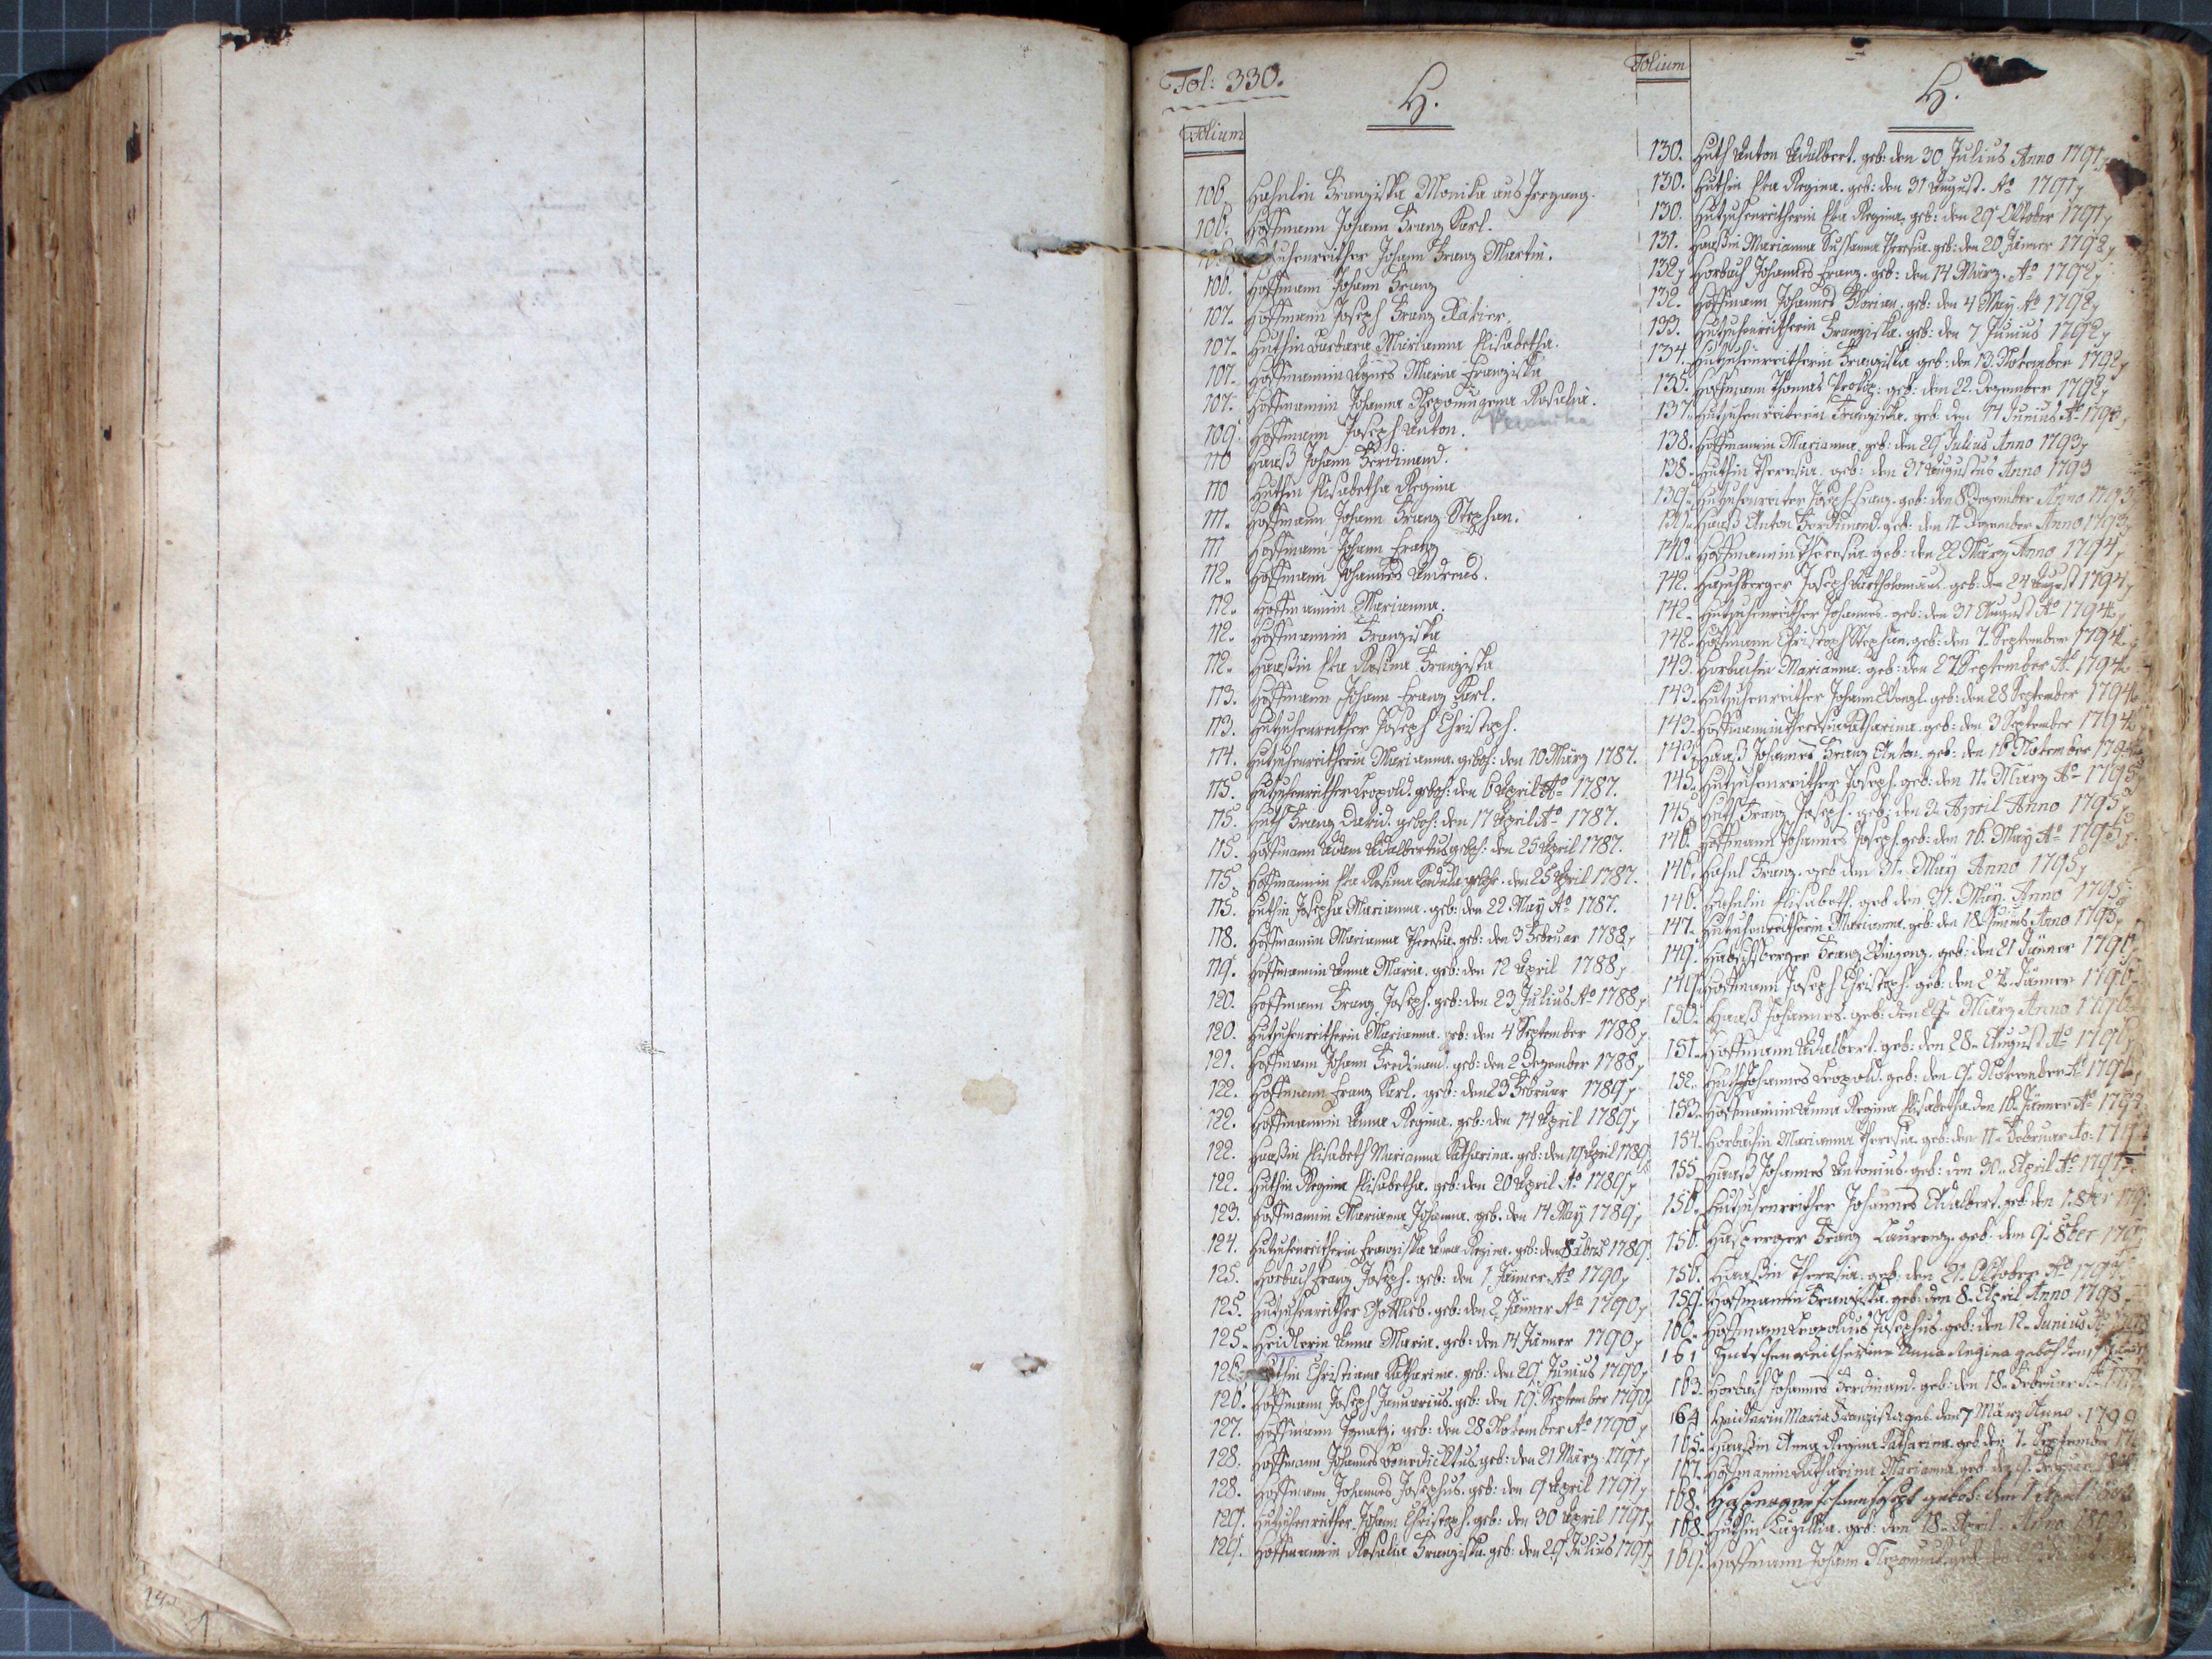 Fol: 330.
H.
Folium
106. Hahnlin Franziska Monika aus
106. Hoffmann Johann Franz Karl.
Johann Franz Martin.
106. Hoffmann Johann Franz
107. Hoffmann Joseph Franz Xavier.
107. Huthin Barbara Marianna Elisabetha.
107. Hoffmannin Agnes Maria Franziska
107. Hoffmannin Johanna Rosalia.
109. Hoffmann Joseph Anton.
110 Haaß Johann Ferdinand.
110 Huthin Elisabetha Regina
111. Hoffmann Johann Franz Stephan.
111 Hoffmann Johann Franz
112. Hoffmann Johannes Andreas.
112. Hoffmannin Marianna.
112. Hoffmannin Franziska
112. Haaßin Eva Rosina Franziska
113. Hoffmann Johann Franz Karl.
113. Hutschenreither Joseph Christoph.
114. Hutschenreitherin Marianna. geboh: den 10 März 1787.
115. Hutschenreither Leopold. geboh: den 6 April Aº 1787.
115. Huth Franz David. geboh: den 17 April Aº 1787.
115. Hoffmann Adam Adalbertus geboh: den 25 April 1787.
115. Hoffmannin Eva Rosina den 25 April 1787.
115. Huthin Josepha Marianna. geb: den 22 May Aº 1787.
118. Hoffmannin Marianna Theresia. geb: den 3 Februar 1788,
119. Hoffmannin Anna Maria. geb: den 12 April 1788,
120. Hoffmann Franz Joseph. geb: den 23 Julius Aº 1788,
120. Hutschenreitherin Marianna. geb: den 4 September 1788,
121. Hoffmann Johann Ferdinand. geb: den 2 Dezember 1788,
122. Hoffmann Franz Karl. geb: den 23 Februar 1789,
122. Hoffmannin Anna Regina. geb: den 14 April 1789,
122. Haaßin Elisabeth Marianna Katharina. geb: den 19 April 1789,
122. Huthin Regina Elisabetha. geb: den 20 April Aº 1789,
123. Hoffmannin Marianna Johanna. geb. den 14 May 1789,
124. Hutschenreitherin Franziska Anna Regina. geb: den 8 1789.
125. Horbach Franz Joseph. geb: den 1 Jänner Aº 1790,
125. Hutschenreither Gottlieb. geb: den 2 Jänner Aº 1790,
125. Heidlerin Anna Maria. geb: den 14 Jänner 1790,
Christiana Katharina. geb: den 29 Junius 1790,
126. Hoffmann Joseph Januarius. geb: den 19. September 1790,
127. Hoffmann Ignatz. geb: den 28 November Aº 1790,
128. Hoffmann Johannes Benedicktus. geb: den 21 März 1791,
128. Hoffmann Johannes Josephus. geb: den 9 April 1791,
129. Hutschenreither Johann Christoph. geb: den 30 April 1791,
129. Hoffmannin Rosalia Franziska. geb: den 29 Julius 1791,
Folium
H.
130. Huth Anton Adalbert. geb: den 30 Julius Anno 1791,
130. Huthin Eva Regina. geb: den 31 August. Aº 1791,
130. Hutschenreitherin Eva Regina. geb: den 29 Oktober 1791,
131. Haaßin Marianna Sussanna Theresia. geb: den 20 Jänner 1792,
132, Horbach Johannes Franz. geb: den 14 März. Aº 1792,
132. Hoffmann Johannes Florian. geb: den 4 May Aº 1792,
133. Hutschenreitherin Franziska. geb: den 7 Junius 1792,
134. Hutschenreitherin Franziska geb: den 13. November 1792,
135. Hoffmann Thomas Prokop. geb: den 22. Dezember 1792,
137. Hutschenreiterin Franziska. geb. den 14 Junius Aº
138. Hoffmannin Marianna. geb: den 29 Julius Anno 1793,
138. Huthin Theresia. geb: den 31 Augustus Anno 1793
139. Hutschenreiter Joseph Franz. geb: den 8 Dezember Anno 1793
139. Haaß Anton Ferdinand. geb: den 11. Dezember Anno 1793,
140. Hoffmannin Theresia. geb: den 22 März Anno 1794,
142. Joseph Bartholomäus. geb: den 24 August 1794,
142. Hutschenreither Johannes. geb: den 31 August Aº 1794,
142. Hoffmann Christoph Stephan. geb: den 7. September 1794,
143. Horbachin Marianna. geb: den 27 September Aº 1794
143. Hutschenreither Johann Wenzl. geb: den 28 September 1794
143. Hoffmannin Theresia Katharina. geb: den 3 September 1794
143. Haaß Johannes Franz Anton. geb: den 16 November 1794
145. Hutschenreither Joseph. geb: den 11. März Aº 1795
145. Huth Franz Joseph. geb: den 2. April Anno 1795
146. Hoffmann Johannes Joseph. geb: den 16. May Aº 1795,
146. Hahnl Franz. geb den 31. May Anno 1795,
146. Hahnlin Elisabeth. geb den 31. May. Anno 1795
147. Hutschenreitherin Marianna. geb: den 18. Junius Anno 1795,
149. Franz Vinzenz. geb: den 21 Jänner 1796,
149. Hoffmann Joseph Christoph. geb: den 24. Jänner 1796,
150. Haaß Johannes. geb: den 29. März Anno 1796
151. Hoffmann Adalbert. geb: den 28. August Aº 1796,
152. Huth Johannes Leopold. geb: den 9. November Aº 1796,
153. Hoffmannin Anna Regina Elisabetha den 16. Jänner Aº 1797
154. Horbachin Marianna Theresia. geb: den 11. Februar Ao: 1797
155. Haaß Johannes Antonius. geb: den 30. April Aº 1797
156. Hutschenreither Johannes Adalbert. geb: den 1. 8ber
156. Hasperger Franz Laurenz. geb. den 9. 8ber
156. Haaßin Theresia. geb. den 21. Oktober Aº 1797
159. Hoffmannin Franziska. geb: den 8. April Anno 1798.
160. Hoffmann Leopoldus Josephus. geb: den 12. Junius
161 Hutschenreitherinn Anna Regina geboh den
163. Horbach Johannes Ferdinand. geb: den 18. Februar
164 Heidlerin Maria Franziska geb. den 7 März Anno 1799
165. Haaßin Anna Regina Katharina. geb den 7. September
167. Hoffmannin Katharina Marianna geb den 9.
168. Hasperger Johann Joseph geboh: den 1 April
168. Huthin geb: den 18. April. Anno
169. Hoffmann Johann